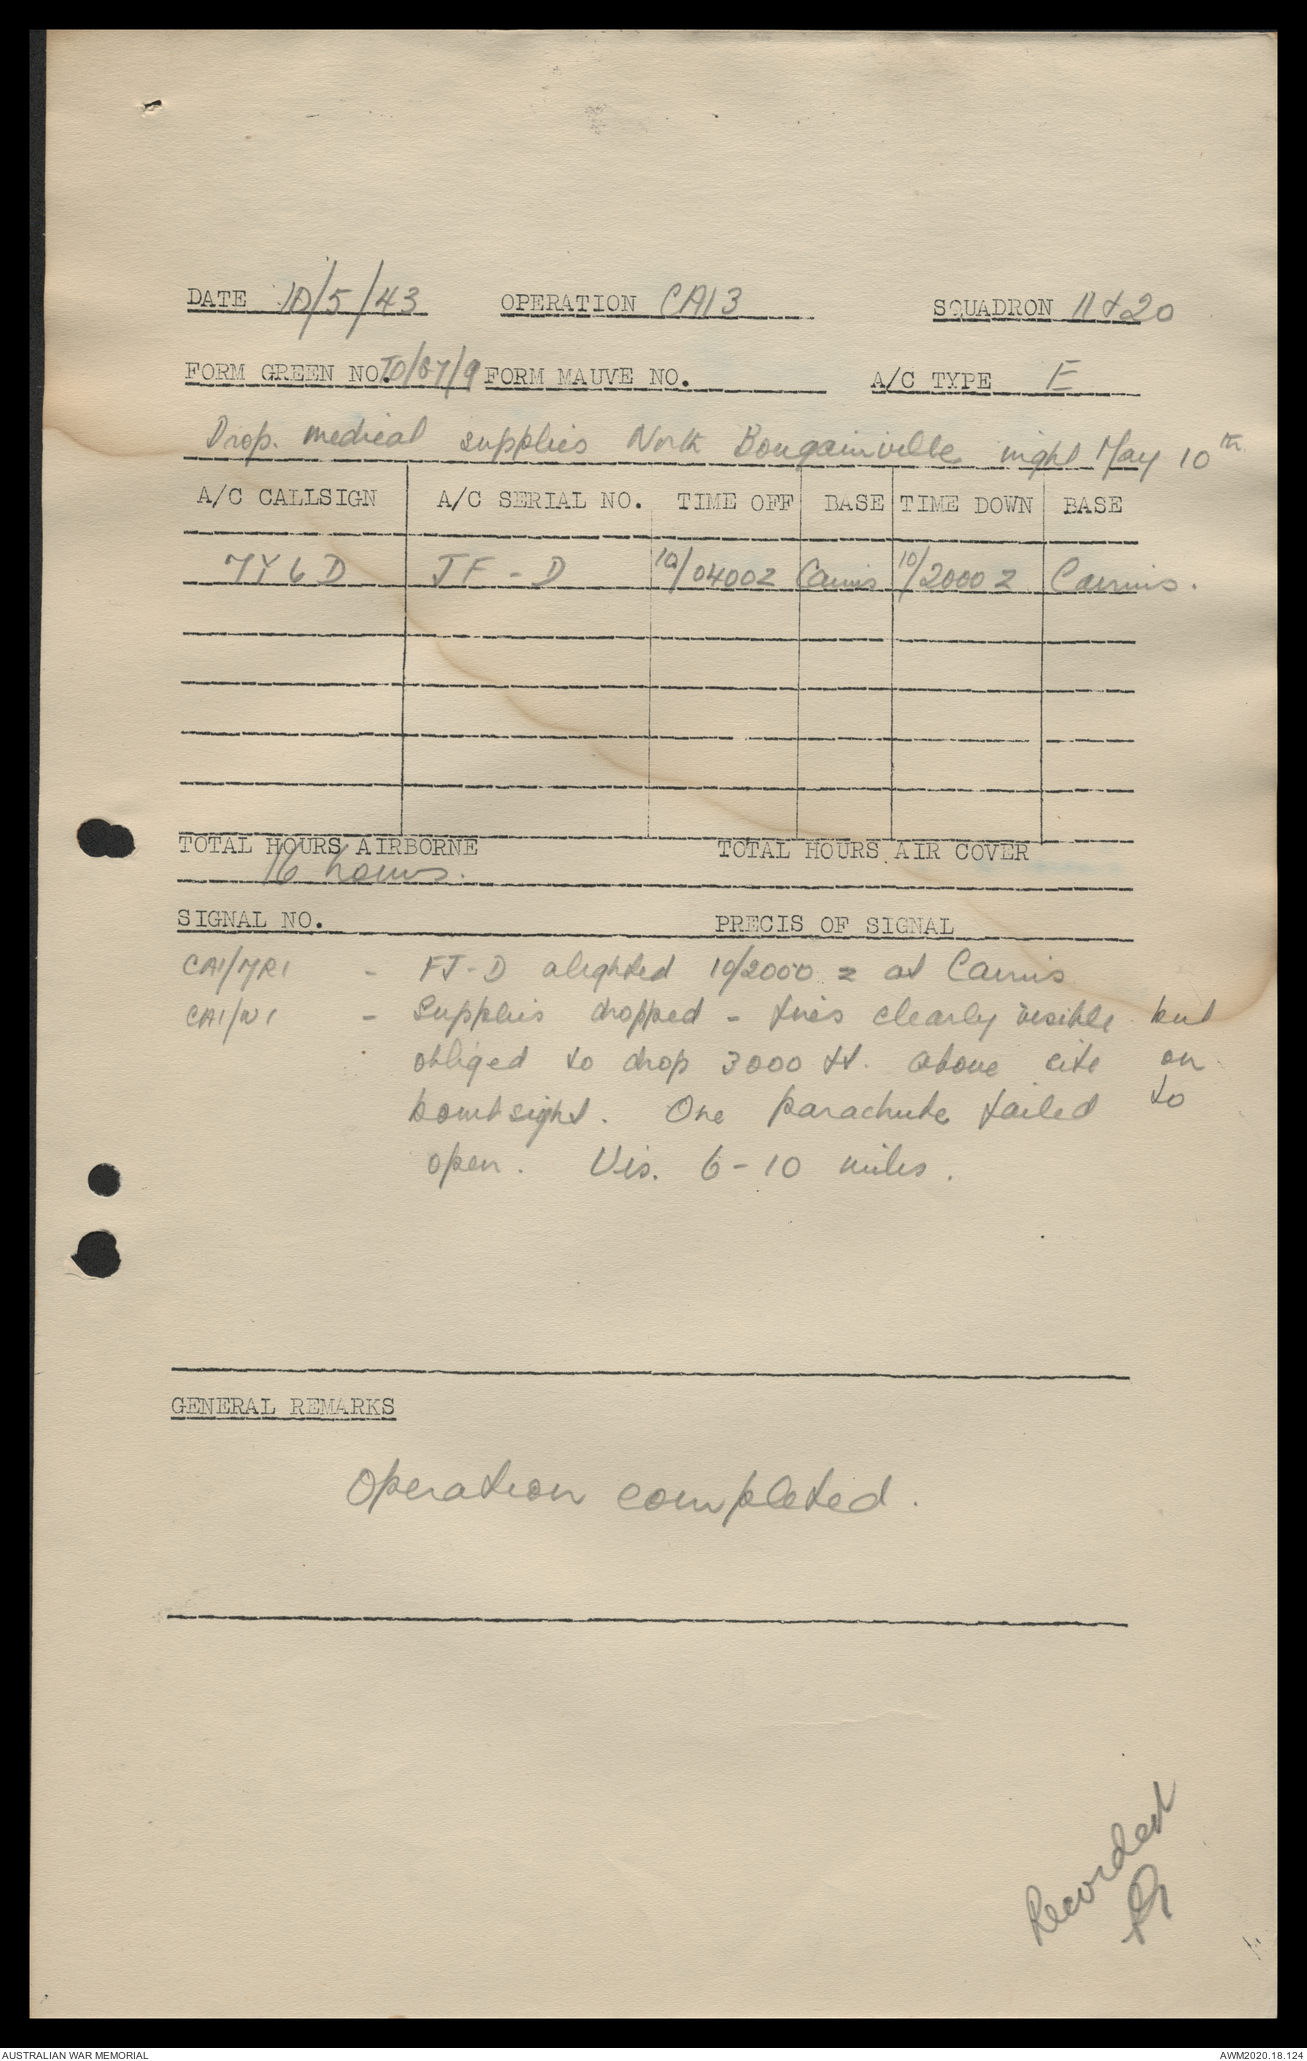 DATE 10/5/43 OPERATION CA13 SQUADRON 11 & 20
FORM GREEN NO. TO/67/9 FORM MAUVE NO. A/C TYPE E
Drop. medical supplies North Bougainville night May 10th
A/C CALLSIGN A/C SERIAL NO. TIME OFF BASE TIME DOWN BASE
7Y6D JF-D 10/0400Z Cairns 10/2000Z Cairns.
TOTAL HOURS AIRBORNE TOTAL HOURS AIR COVER
16 hours.
SIGNAL NO. PRECIS OF SIGNAL
CA1/MR1 - FJ-D alighted 10/2000 z at Cairns
CA1/W1 - Supplies dropped - fires clearly visible but
obliged to drop 3000 ft. above site on
bombsight. One parachute failed to
open. Vis. 6-10 miles.
GENERAL REMARKS
Operation completed.
Recorded
AUSTRALIAN WAR MEMORIAL AWM2020.18.124